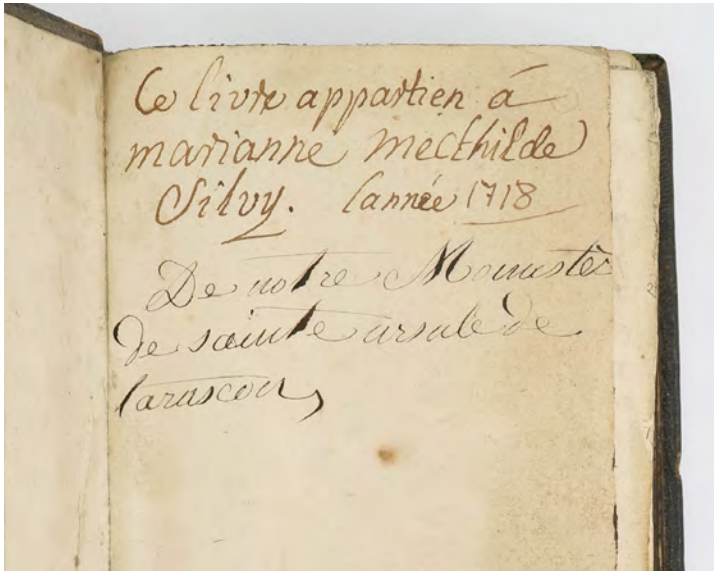 Ce livre appartien á
marianne mecthilde
Silvy. lannée 1718
De notre Monastèr
de sainte ursule de
tarascon,